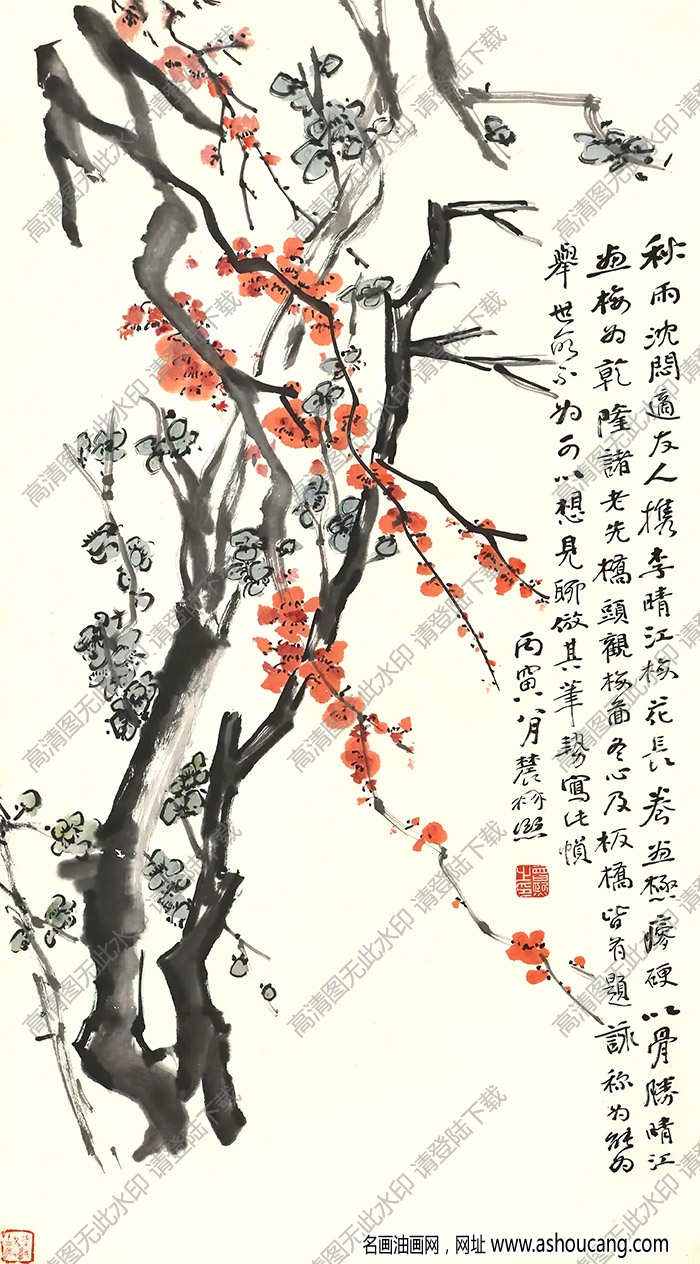 秋雨沈悶適友人携李晴江梅花長卷畫極瘦硬以骨勝晴江
畫梅为乾隆諸老先橋頭觀梅圖冬心及板橋皆有題詠称为能为
舉世所不为可以想見聊倣其筆勢寫此幀
丙寅八月農髯熙
曾熙之印
高清图无此水印 请登陆下载
名画油画网，网址 www.ashoucang.com